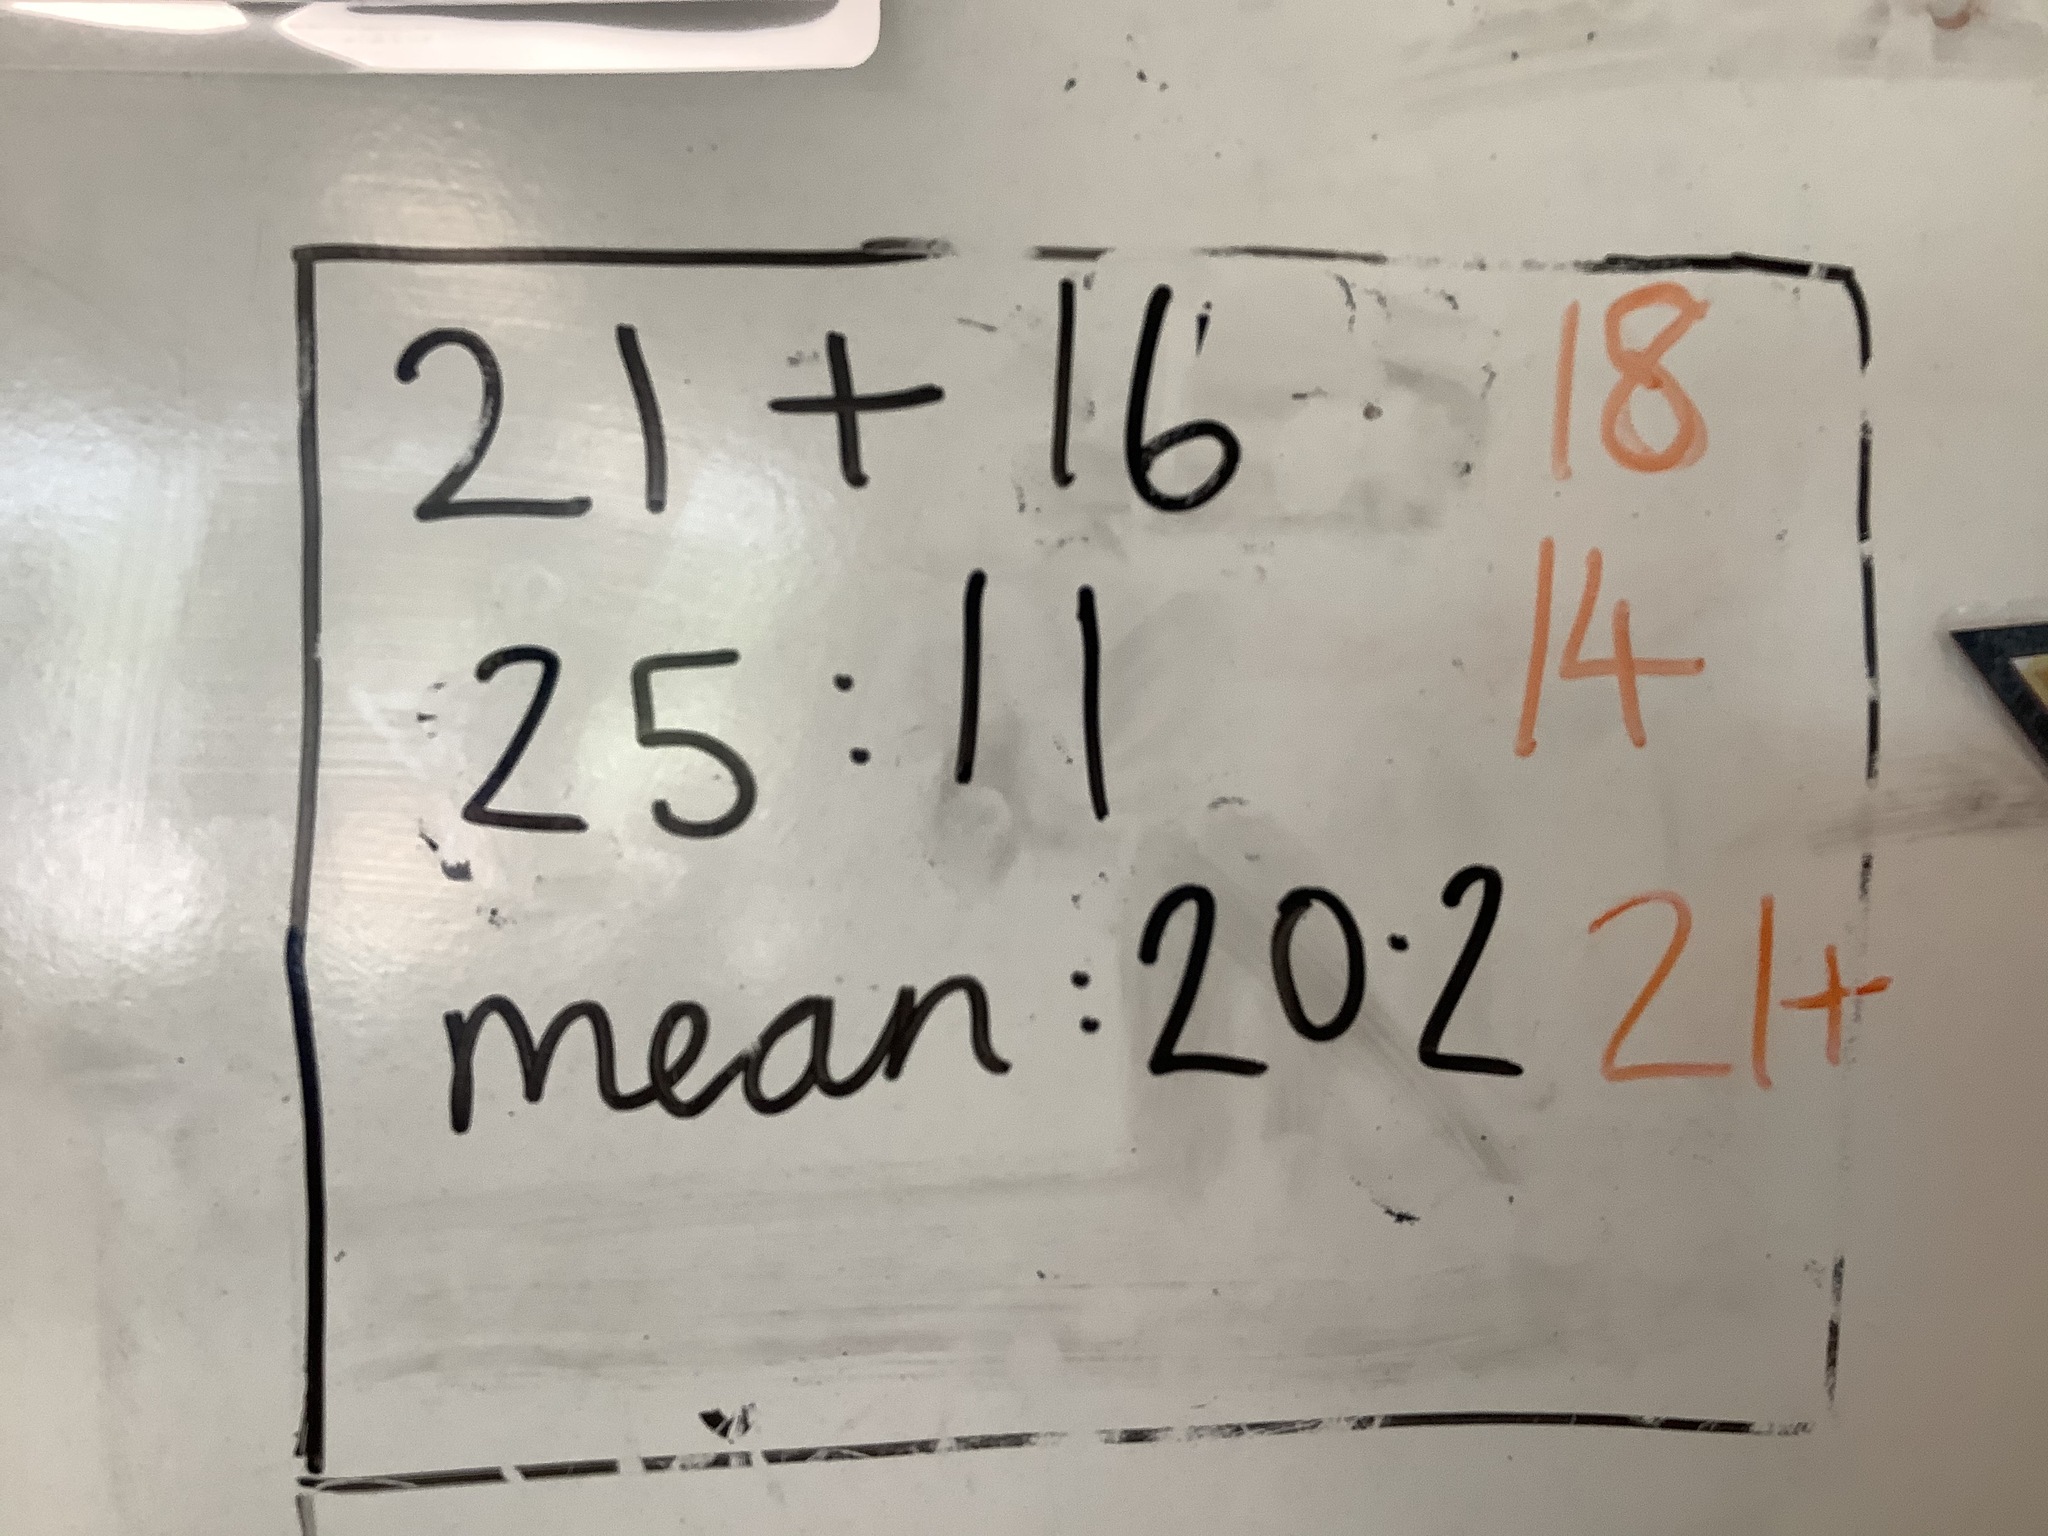 21 + 16 18
25 : 11 14
mean : 20.2 21+